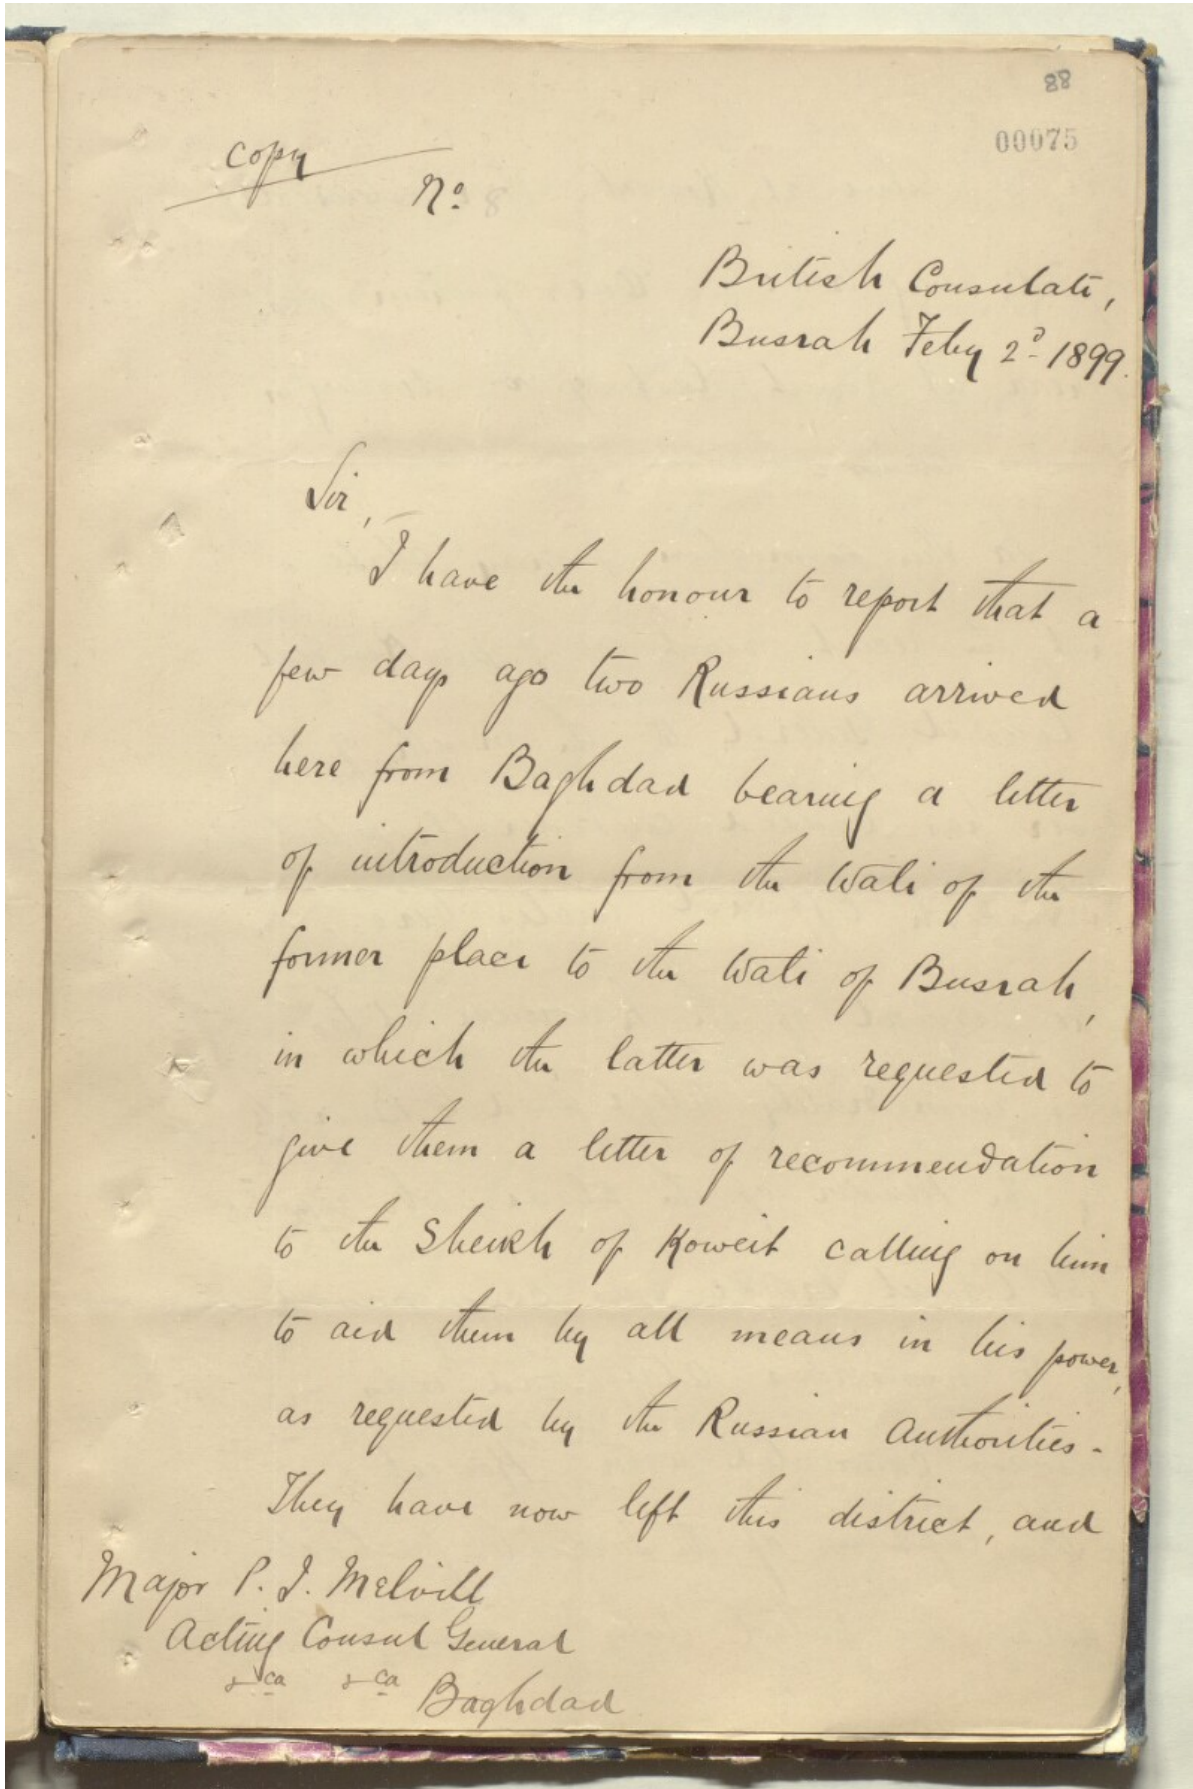 88
00075
Copy
No.
British Consulate,
Busrah Feby 2d 1899.
Sir,
I have the honour to report that a
few days ago two Russians arrived
here from Baghdad bearing a letter
of introduction from the Wali of the
former place to the Wali of Busrah,
in which the latter was requested to
give them a letter of recommendation
to the Sheikh of Koweit calling on him
to aid them by all means in his power,
as requested by the Russian Authorities.
They have now left this district, and
Major P. J. Melvill
Acting Consul General
&ca &ca
Baghdad